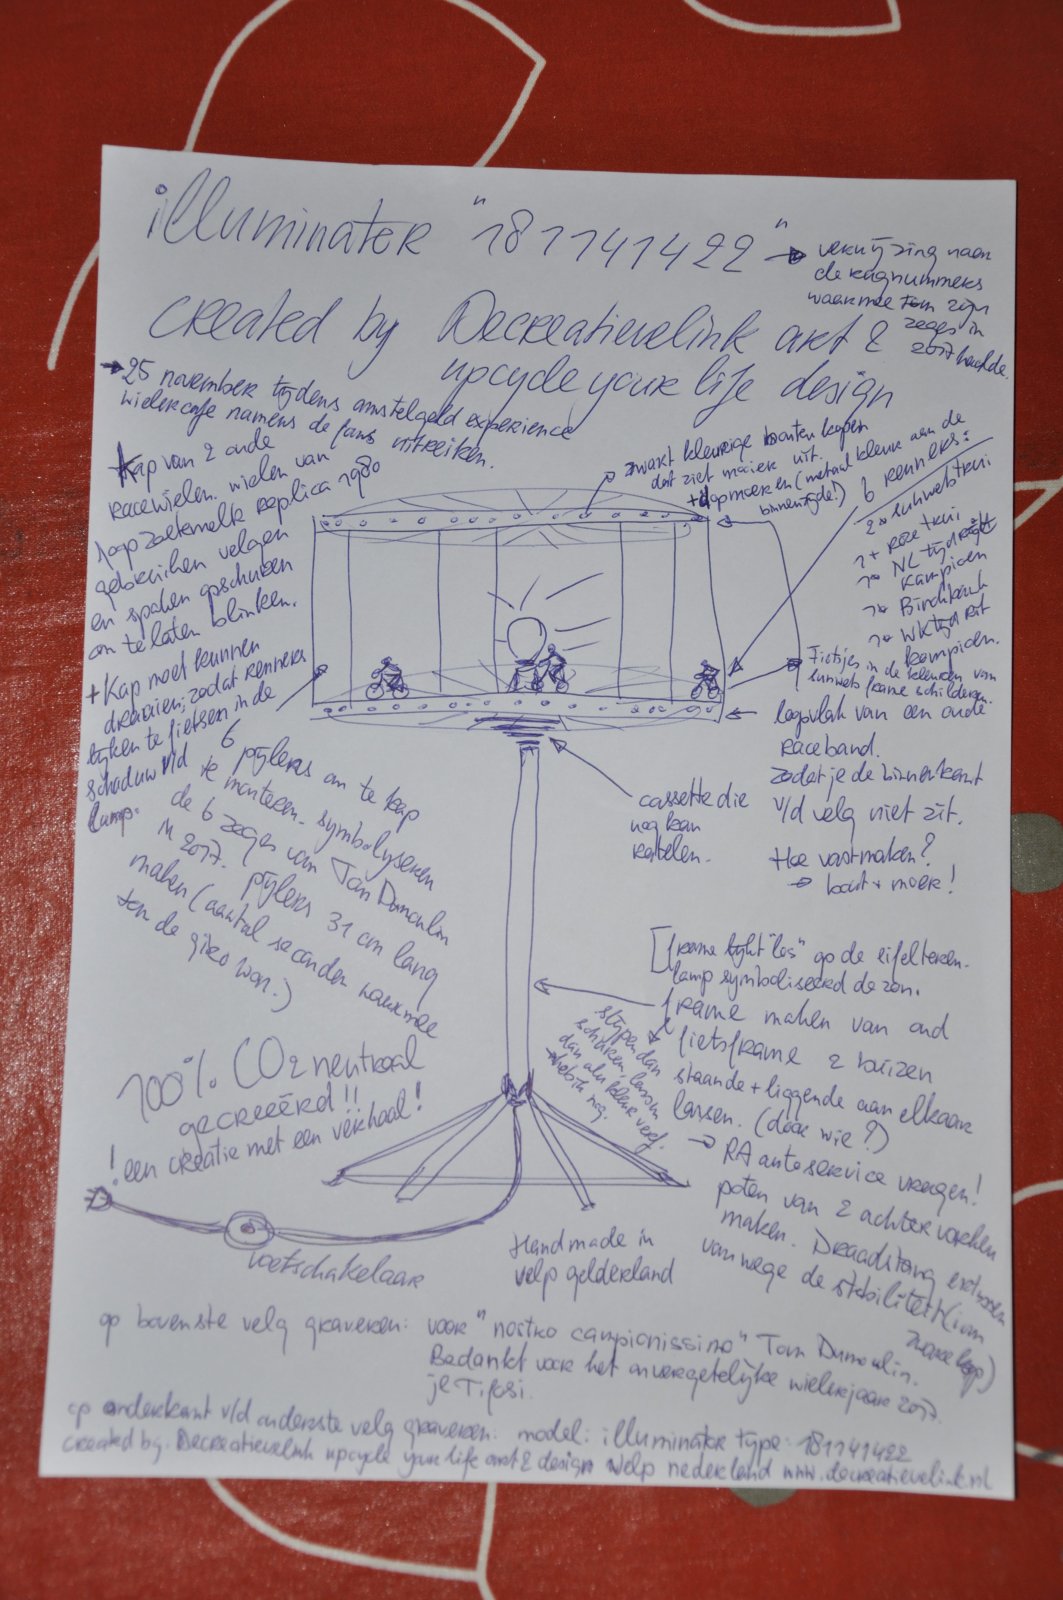 illuminater "181141422"
verwijzing naar
de rugnummers
waarmee Tom zijn
zeges in
2017 haalde.
created by Decreatievelink art &
upcycle your life design
25 november tijdens amstelgold experience
wielercafe namens de fans uitreiken.
Kap van 2 oude
racewielen. wielen van
Joop Zoetemelk replica 1980
gebruiken velgen
en spaken opschuren
om te laten blinken.
+ Kap moet kunnen
draaien; zodat renners
lijken te fietsen in de
schaduw v/d
lamp.
zwart kleurige bouten kopen
dat ziet mooier uit.
+ dopmoeren (metaal kleur aan de
binnenzijde!)
6 renners:
2x sunwebtrui
1x roze trui
1x NL tijdrit
kampioen
1x Binckbank
1x WK tijdrit
kampioen.
Fietsjes in de kleuren van
sunweb frame schilderen
loopvlak van een oude
raceband.
zodat je de binnenkant
v/d velg niet zit.
Hoe vastmaken?
→ bout + moer!
cassette die
nog kan
ratelen.
6 pijlers om te kap
te monteren. symboliseren
de 6 zeges van Tom Dumoulin
in 2017. pijlers 31 cm lang
maken (aantal seconden waarmee
tom de giro won.)
[frame lijkt "los" op de eifeltoren.
lamp symboliseerd de zon.
frame maken van oud
fietsframe 2 buizen
staande + liggende aan elkaar
lassen. (door wie?)
→ RA autoservice vragen!
poten van 2 achter vorken
maken. Draadstang
vanwege de stabiliteit (ivm
zware kap)
strippen dan
schuren, lassen
dan alu kleur verf.
→ heb ik nog.
100% CO2 neutraal
gecreeërd!!
! een creatie met een verhaal!
voetschakelaar
Handmade in
velp gelderland
op bovenste velg graveren: voor "nostro campionissimo" Tom Dumoulin.
Bedankt voor het onvergetelijke wielerjaar 2017.
je Tifosi.
op onderkant v/d onderste velg graveren: model: illuminater type: 181141422
created by. Decreatievelink upcycle your life art & design Velp nederland www.decreatievelink.nl